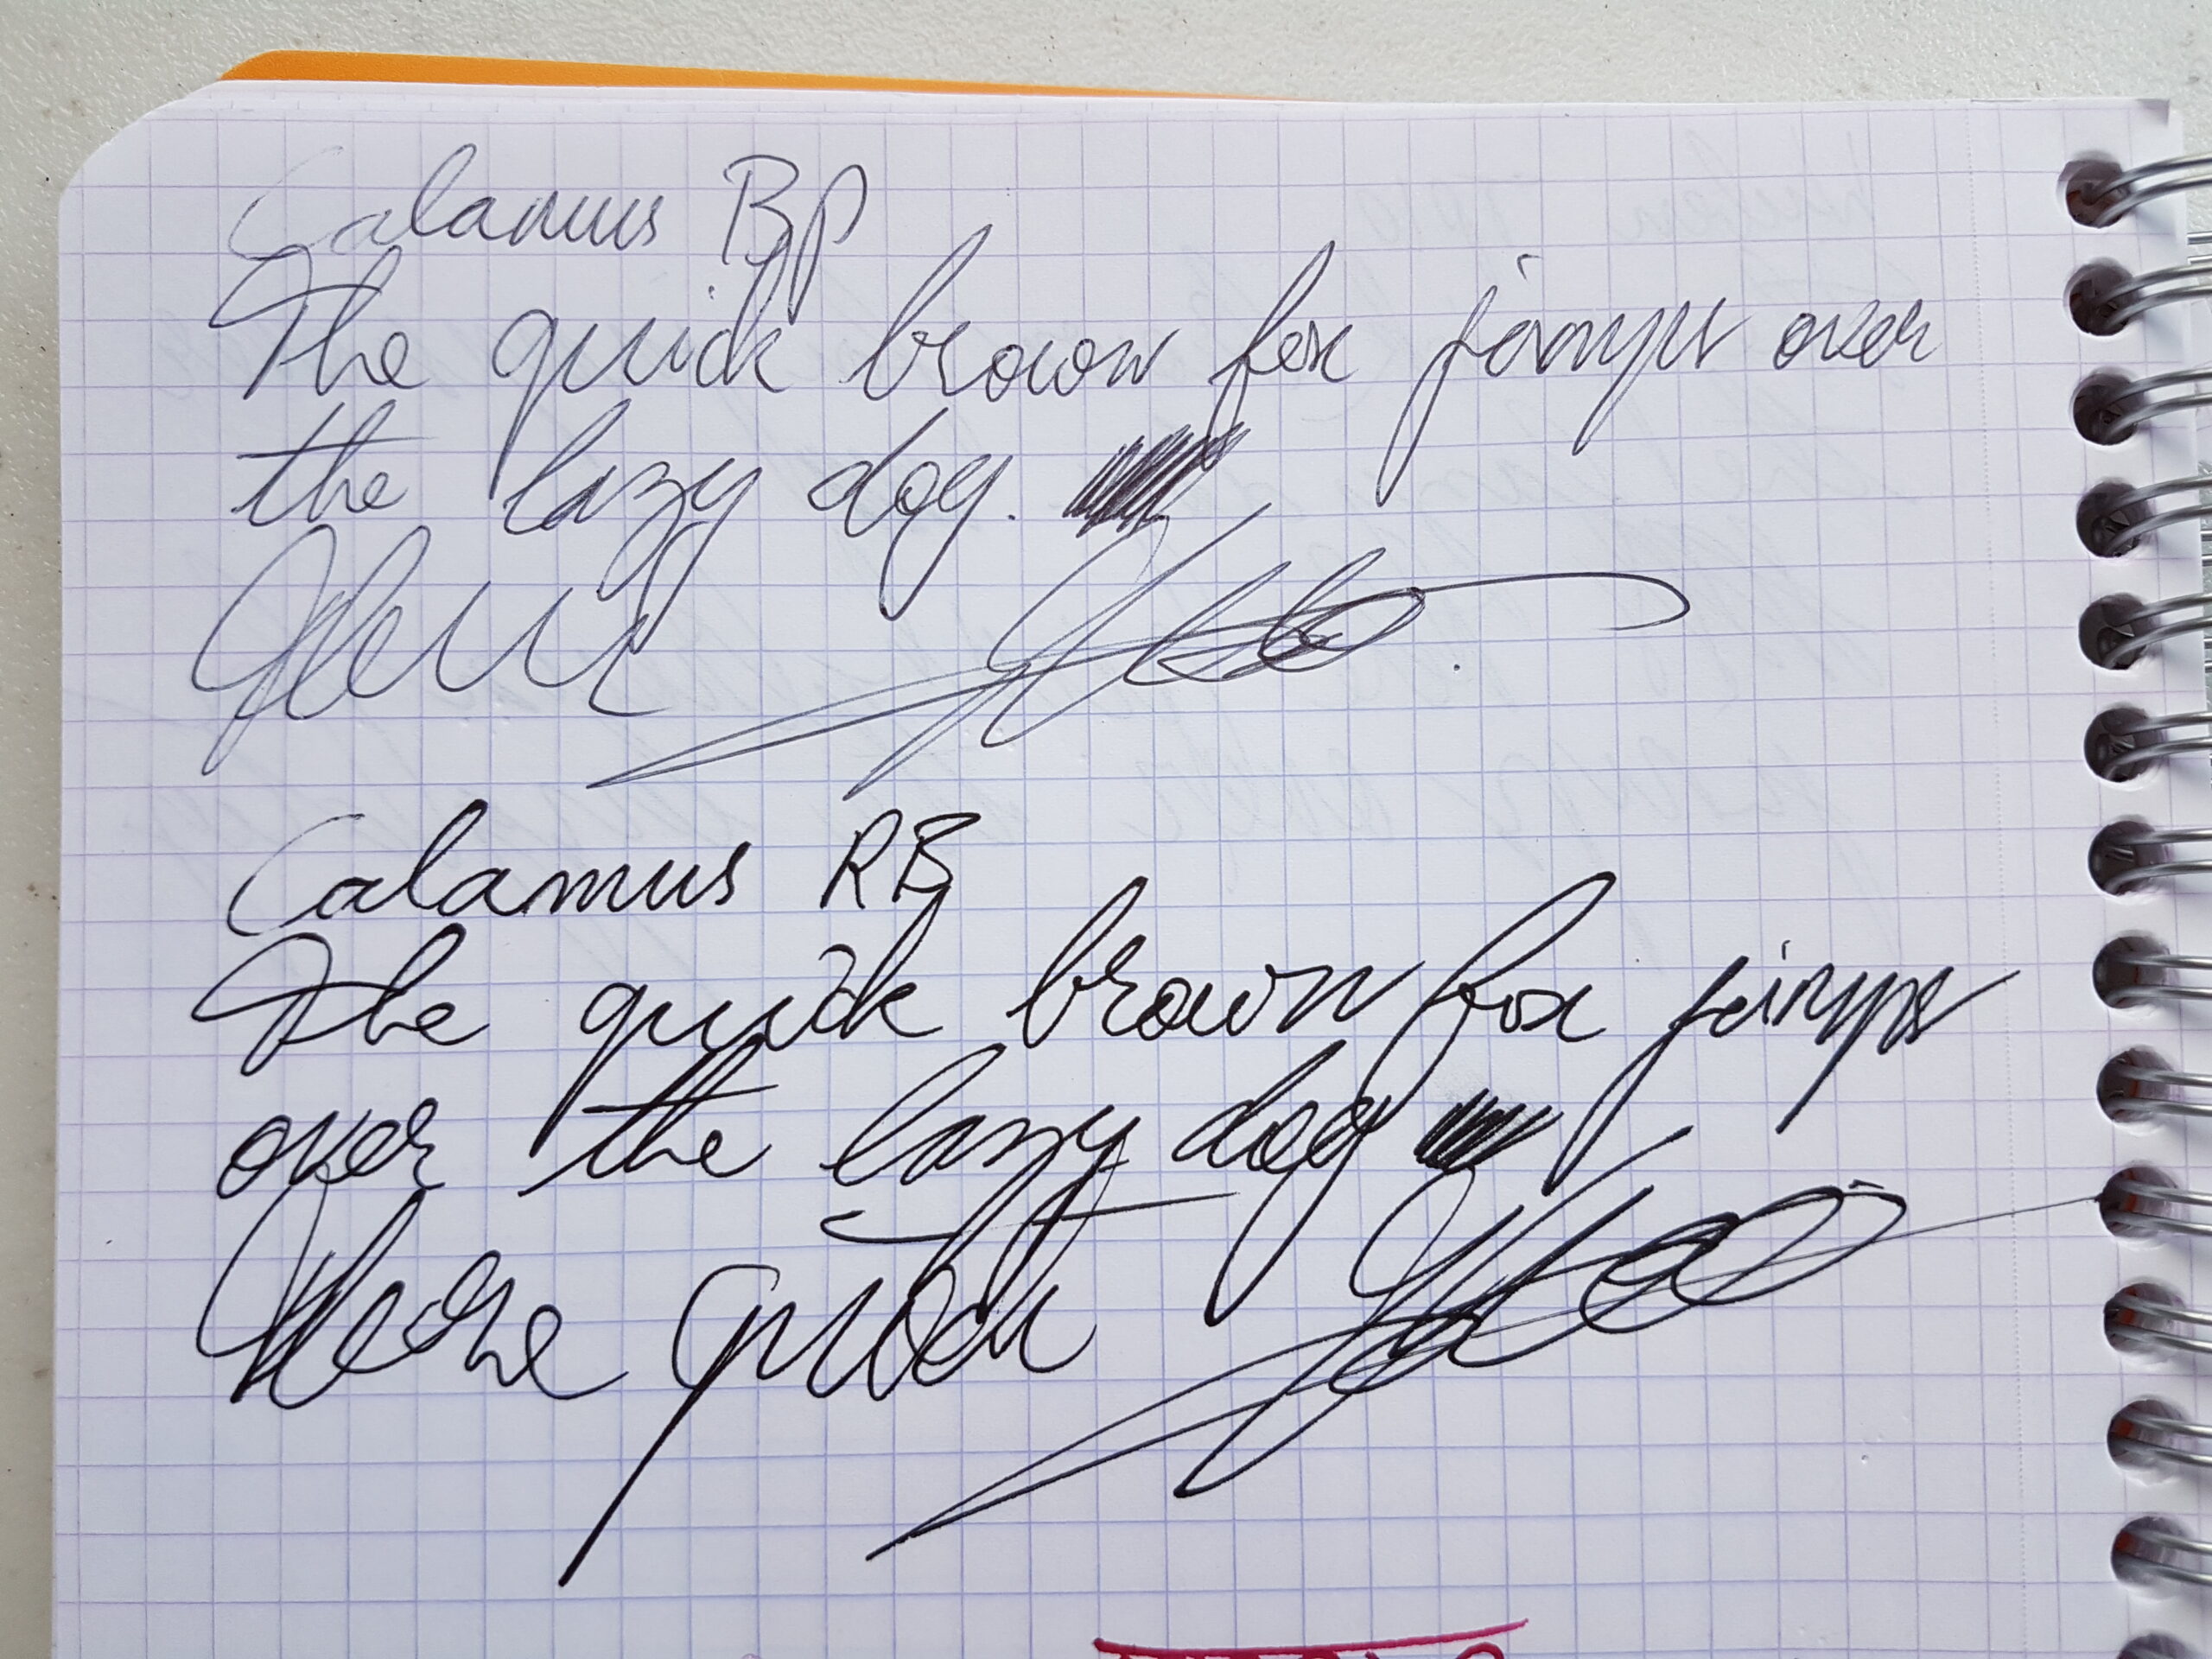 Calamus BP
The quick brown fox jumps over
the lazy dog.
Calamus RB
The quick brown fox jumps
over the lazy dog
quick